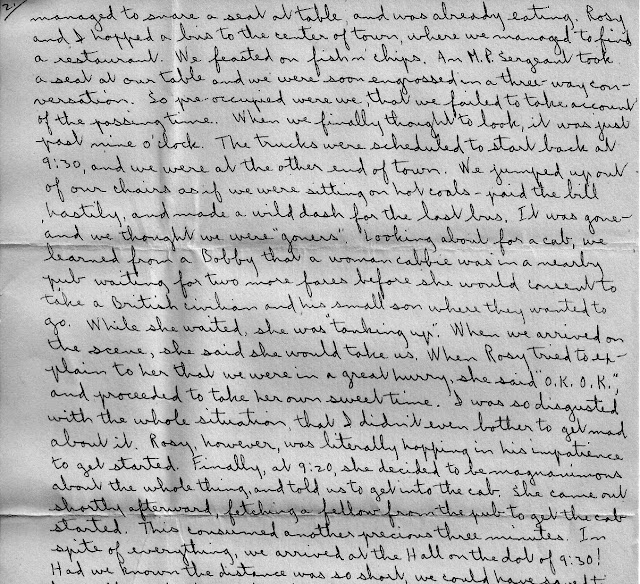 2.
managed to snare a seat at table, and was already eating. Rosy
and I hopped a bus to the center of town, where we managed to find
a restaurant. We feasted on fish n' chips. An M.P. Sergeant took
a seat at our table and we were soon engrossed in a three-way con-
versation. So pre-occupied were we, that we failed to take account
of the passing time. When we finally thought to look, it was just
past nine o'clock. The trucks were scheduled to start back at
9:30, and we were at the other end of town. We jumped up out
of our chairs as if we were sitting on hot coals - paid the bill
hastily, and made a wild dash for the last bus. It was gone -
and we thought we were "goners". Looking about for a cab, we
learned from a Bobby that a woman cabbie was in a nearby
pub waiting for two more fares before she would consent to
take a British civilian and his small son where they wanted to
go. While she waited, she was "tanking up". When we arrived on
the scene, she said she would take us. When Rosy tried to ex-
plain to her that we were in a great hurry, she said "O.K. O.K.",
and proceeded to take her own sweet time. I was so disgusted
with the whole situation, that I didn't even bother to get mad
about it. Rosy, however, was literally hopping in his impatience
to get started. Finally, at 9:20, she decided to be magnanimous
about the whole thing, and told us to get into the cab. She came out
shortly afterward, fetching a fellow from the pub to get the cab
started. This consumed another precious three minutes. In
spite of everything, we arrived at the Hall on the dot of 9:30!
Had we known the distance was so short, we could have saved it